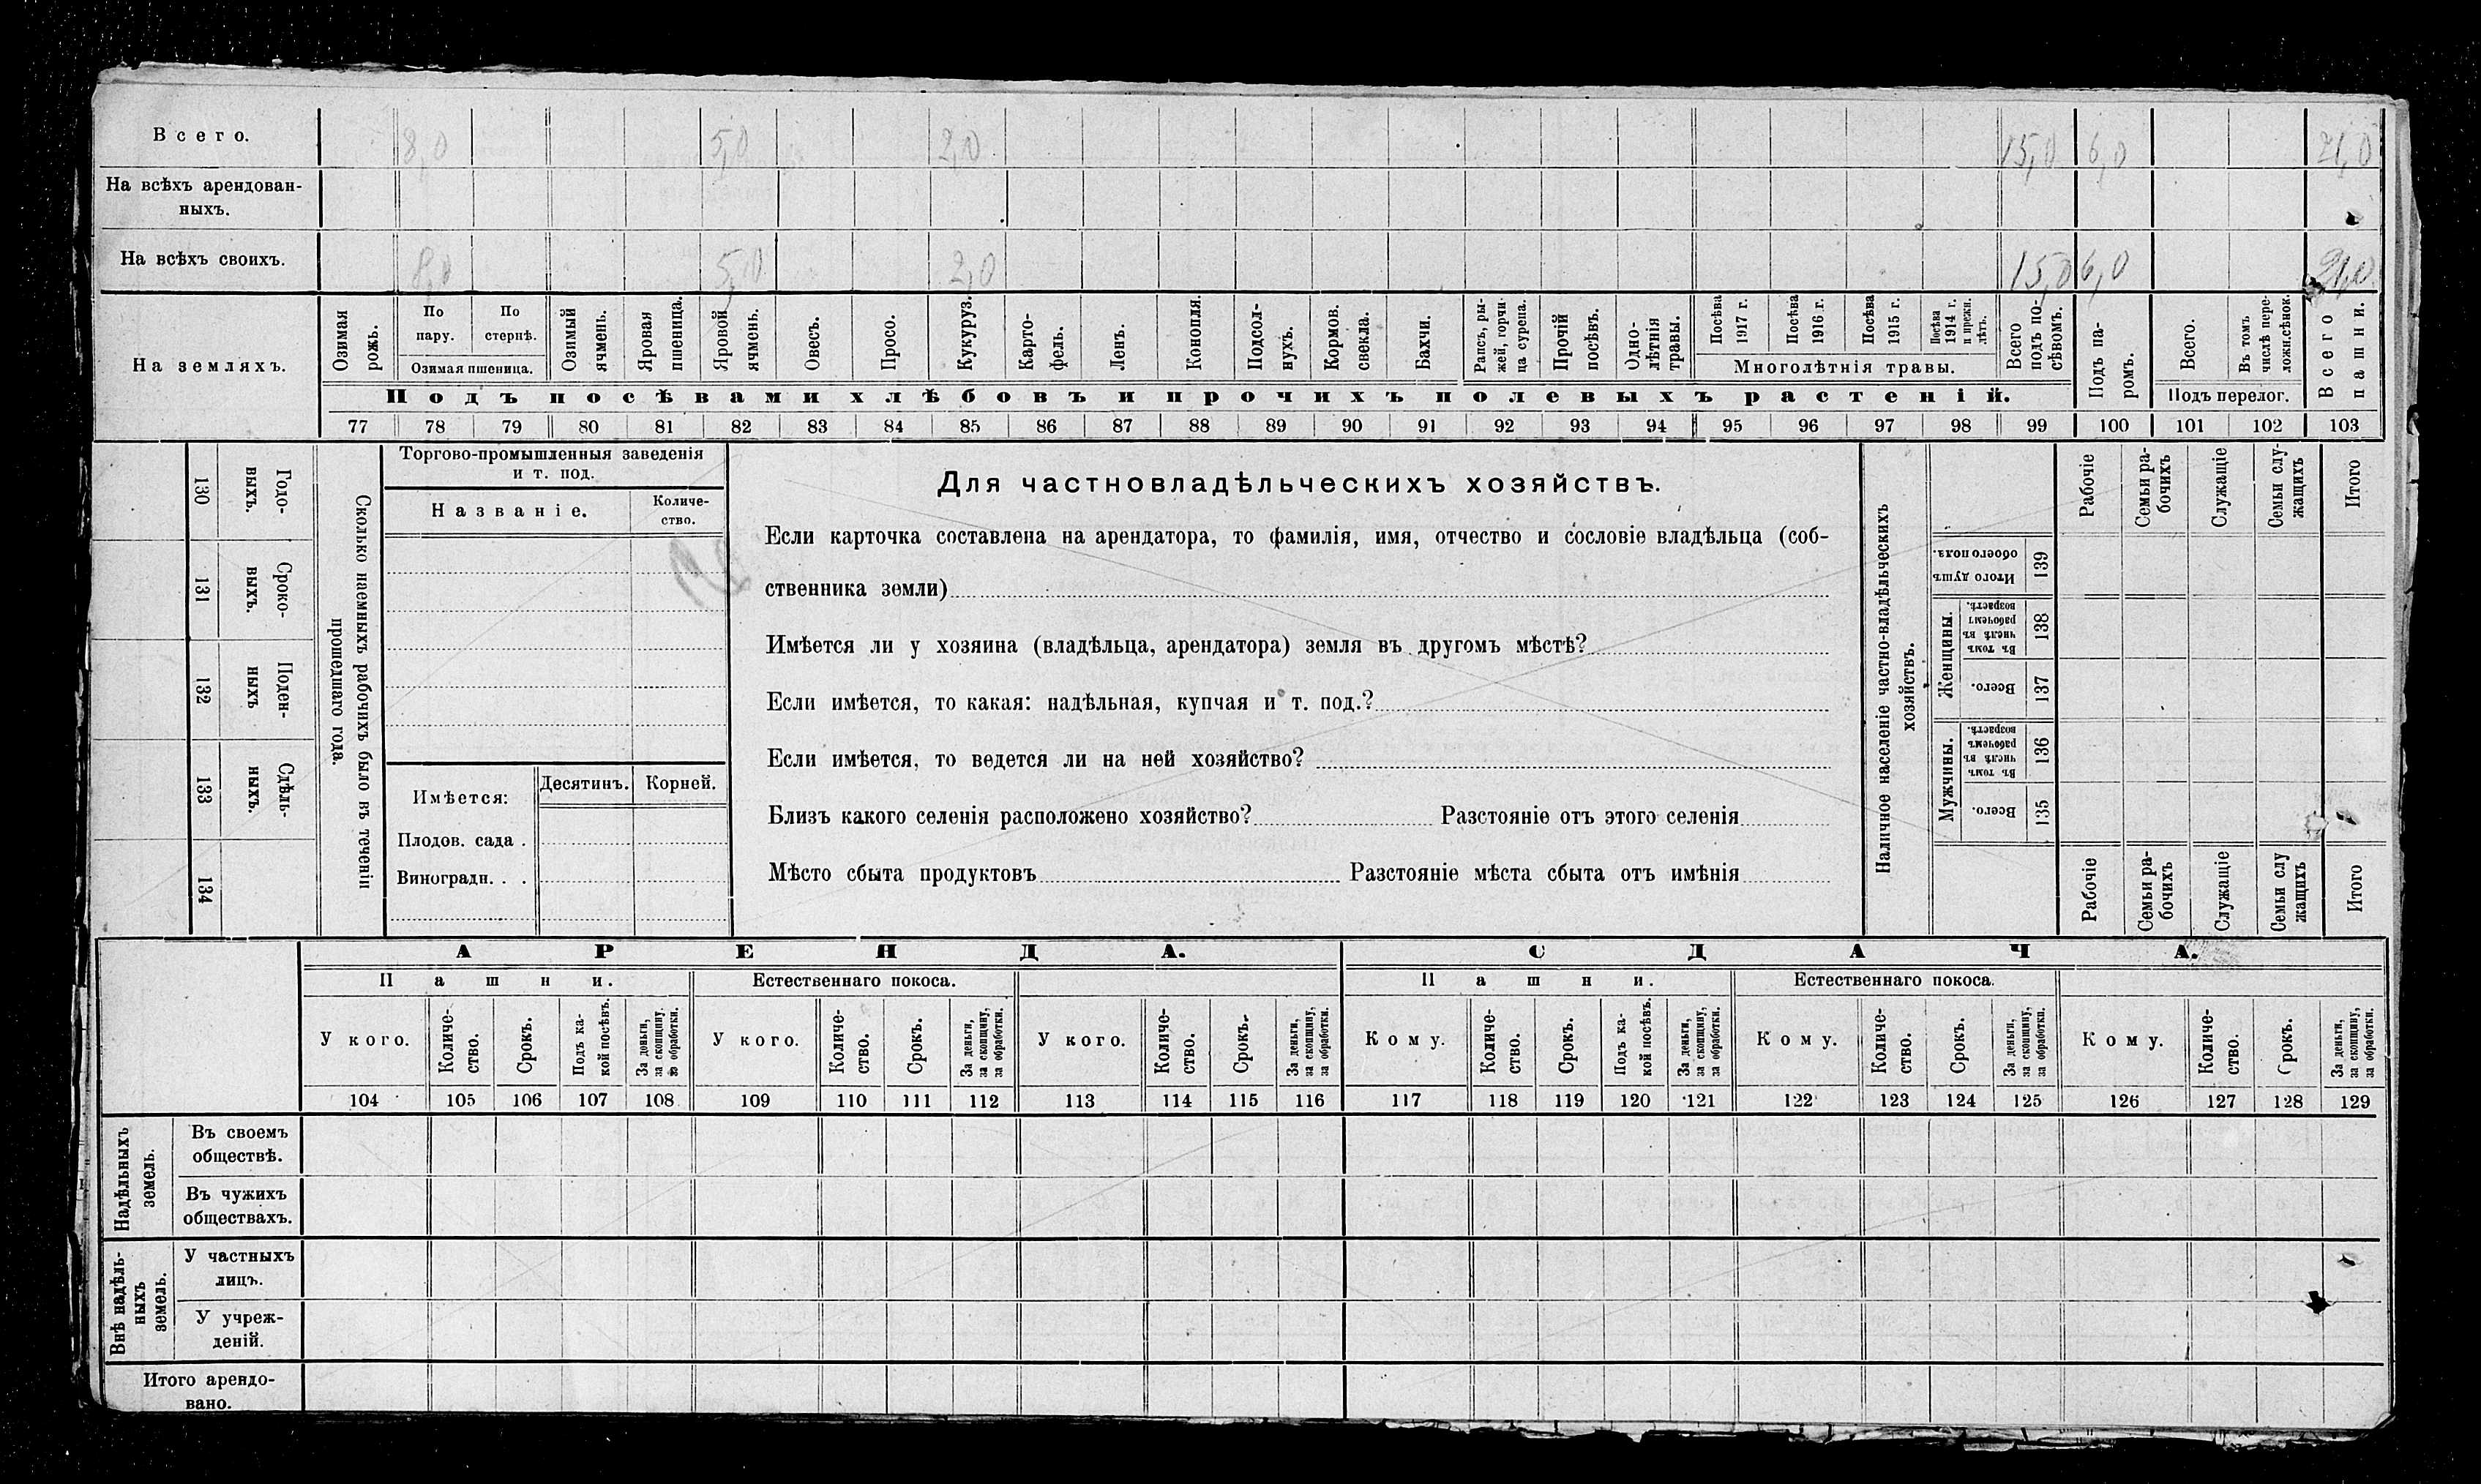 Всего. 8,0 5,0 2,0 15,0 6,0 21,0
На всѣхъ арендован-
ныхъ.
На всѣхъ своихъ. 8,0 5,0 2,0 15,0 6,0 21,0
На земляхъ.
Озимая рожь.
По пару.
По стернѣ.
Озимая пшеница.
Озимый ячмень.
Яровая пшеница.
Яровой ячмень.
Овесъ.
Просо.
Кукуруз.
Карто-
фель.
Ленъ.
Конопля.
Подсол-
нухъ.
Кормов. свекла.
Бахчи.
Рапсъ, ры-
жей, горчи
ца сурепа.
Прочій посѣвъ.
Одно-
лѣтнія травы.
Посѣва 1917 г.
Посѣва 1916 г.
Посѣва 1915 г.
Посѣва 1914 г. и прежн. лѣтъ.
Многолѣтнія травы.
Всего подъ по-
сѣвомъ.
Подъ па-
ромъ.
Всего.
Въ томъ числѣ пере-
ложн.сѣнок.
Подъ перелог.
Всего пашни.
Подъ посѣвами хлѣбовъ и прочихъ полевыхъ растеній.
77 78 79 80 81 82 83 84 85 86 87 88 89 90 91 92 93 94 95 96 97 98 99 100 101 102 103
130 Годо-
выхъ.
131 Сроко-
выхъ.
132 Поден-
ныхъ
133 Сдѣль-
ныхъ.
134
Сколько наемныхъ рабочихъ было въ теченіи
прошедшаго года.
Торгово-промышленныя заведенія
и т. под.
Названіе.
Количе-
ство.
Имѣется:
Десятинъ. Корней.
Плодов. сада .
Виноградн. . .
Для частновладѣльческихъ хозяйствъ.
Если карточка составлена на арендатора, то фамилія, имя, отчество и сословіе владѣльца (соб-
ственника земли)
Имѣется ли у хозяина (владѣльца, арендатора) земля въ другомъ мѣстѣ?
Если имѣется, то какая: надѣльная, купчая и т. под.?
Если имѣется, то ведется ли на ней хозяйство?
Близъ какого селенія расположено хозяйство? Разстояніе отъ этого селенія
Мѣсто сбыта продуктовъ Разстояніе мѣста сбыта отъ имѣнія
Наличное населеніе частно-владѣльческихъ
хозяйствъ.
Рабочіе
Семьи ра-
бочихъ
Служащіе
Семьи слу-
жащихъ
Итого
Итого душъ обоего пола. 139
Женщины.
Въ томъ числѣ въ рабочемъ возрастѣ. 138
Всего. 137
Мужчины.
Въ томъ числѣ въ рабочемъ возрастѣ. 136
Всего. 135
Рабочіе
Семьи ра-
бочихъ
Служащіе
Семьи слу
жащихъ
Итого
АРЕНДА. СДАЧА.
Пашни. Естественнаго покоса. Пашни. Естественнаго покоса.
У кого.
Количе-
ство.
Срокъ.
Подъ ка-
кой посѣвъ.
За деньги,
за скопщину,
за обработки.
У кого.
Количе-
ство.
Срокъ.
За деньги,
за скопщину,
за обработки.
У кого.
Количе-
ство.
Срокъ.
За деньги,
за скопщину,
за обработки.
Кому.
Количе-
ство.
Срокъ.
Подъ ка-
кой посѣвъ.
За деньги,
за скопщину,
за обработки.
Кому.
Количе-
ство.
Срокъ.
За деньги,
за скопщину,
за обработки.
Кому.
Количе-
ство.
Срокъ.
За деньги,
за скопщину,
за обработки.
104 105 106 107 108 109 110 111 112 113 114 115 116 117 118 119 120 121 122 123 124 125 126 127 128 129
Надѣльныхъ
земель.
Въ своемъ
обществѣ.
Въ чужихъ
обществахъ.
Внѣ надѣль-
ныхъ
земель.
У частныхъ
лицъ.
У учреж-
деній.
Итого арендо-
вано.